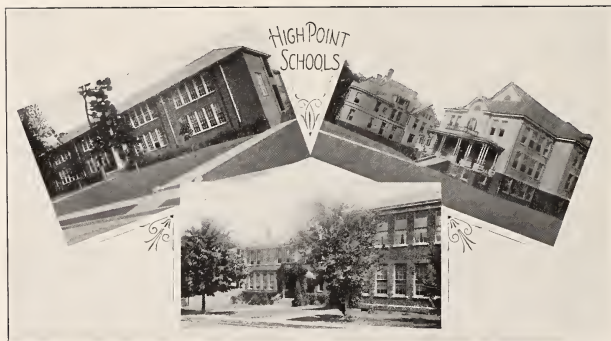 HIGH POINT
SCHOOLS